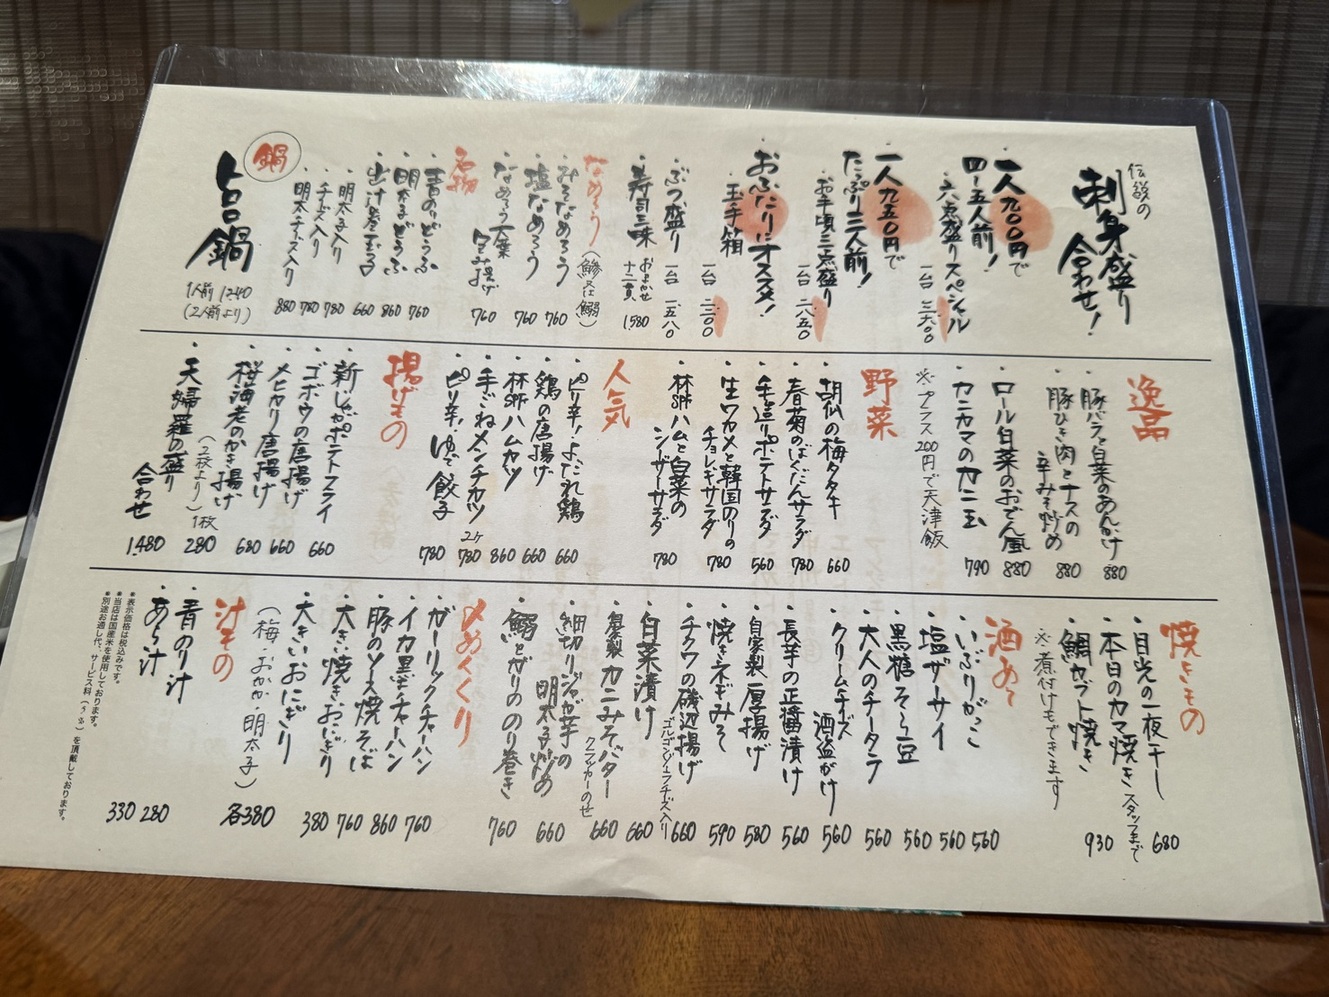 伝説の
刺身盛り
合わせ！
一人九〇〇円で
四〜五人前！
・六点盛りスペシャル
一台 三六〇〇
一人九五〇円で
たっぷり三人前！
・お手頃三点盛り
一台 二八五〇
・おふたりにオススメ！
玉手箱
一台 二二〇〇
・ぶつ盛り
一台 一五八〇
・寿司三昧
おまかせ
十二貫
1580
なめろう
（鯵又は鰯）
・みそなめろう 760
・塩なめろう 760
・なめろう大葉
包み揚げ 760
名物
・青のりどうふ 760
・明太子どうふ 860
・出汁巻玉子 660
・明太子入り 780
・チーズ入り 780
・明太チーズ入り 880
鍋
旨口鍋
1人前 1240
（2人前より）
逸品
・豚バラと白菜のあんかけ 880
・豚ひき肉とナスの
辛みそ炒め 880
・ロール白菜のおでん風 880
・カニカマのカニ玉 790
※プラス200円で天津飯
野菜
・胡瓜の梅タタキ 660
・春菊のばくだんサラダ 780
・手造りポテトサラダ 560
・生ワカメと韓国のりの
チョレギサラダ 780
・林SPFハムと白菜の
シーザーサラダ 780
人気
・ピリ辛！よだれ鶏 660
・鶏の唐揚げ 660
・林SPFハムカツ 860
・手ごねメンチカツ 2ヶ 780
・ピリ辛！ゆで餃子 780
揚げもの
・新じゃがポテトフライ 660
・ゴボウの唐揚げ
・メヒカリ唐揚げ 660
・桜海老のかき揚げ 680
（2枚より）1枚 280
・天婦羅の盛り
合わせ 1480
焼きもの
・目光の一夜干し 680
・本日のカマ焼き スタッフまで
・鯛カブト焼き 930
※煮付けもできます
酒あて
・いぶりがっこ 560
・塩ザーサイ 560
・黒糖そら豆 560
・大人のチータラ 560
・クリームチーズ
酒盗がけ 560
・長芋の正醤漬け 560
・自家製厚揚げ 580
・焼きネギみそ 590
・チクワの磯辺揚げ 660
ゴルゴンゾーラチーズ入り
・白菜漬け 660
・自家製カニみそバター
クラッカーのせ 660
・細切りジャガ芋の
明太子炒め 660
・鰯とガリののり巻き 760
〆めくくり
・ガーリックチャーハン 760
・イカ墨チャーハン 860
・豚のソース焼そば 760
・大きい焼きおにぎり 380
・大きいおにぎり
（梅・おかか・明太子） 各380
汁もの
・青のり汁 280
・あら汁 330
●表示価格は税込みです。
●当店は国産米を使用しております。
●別途お通し代、サービス料（5%）を頂戴しております。